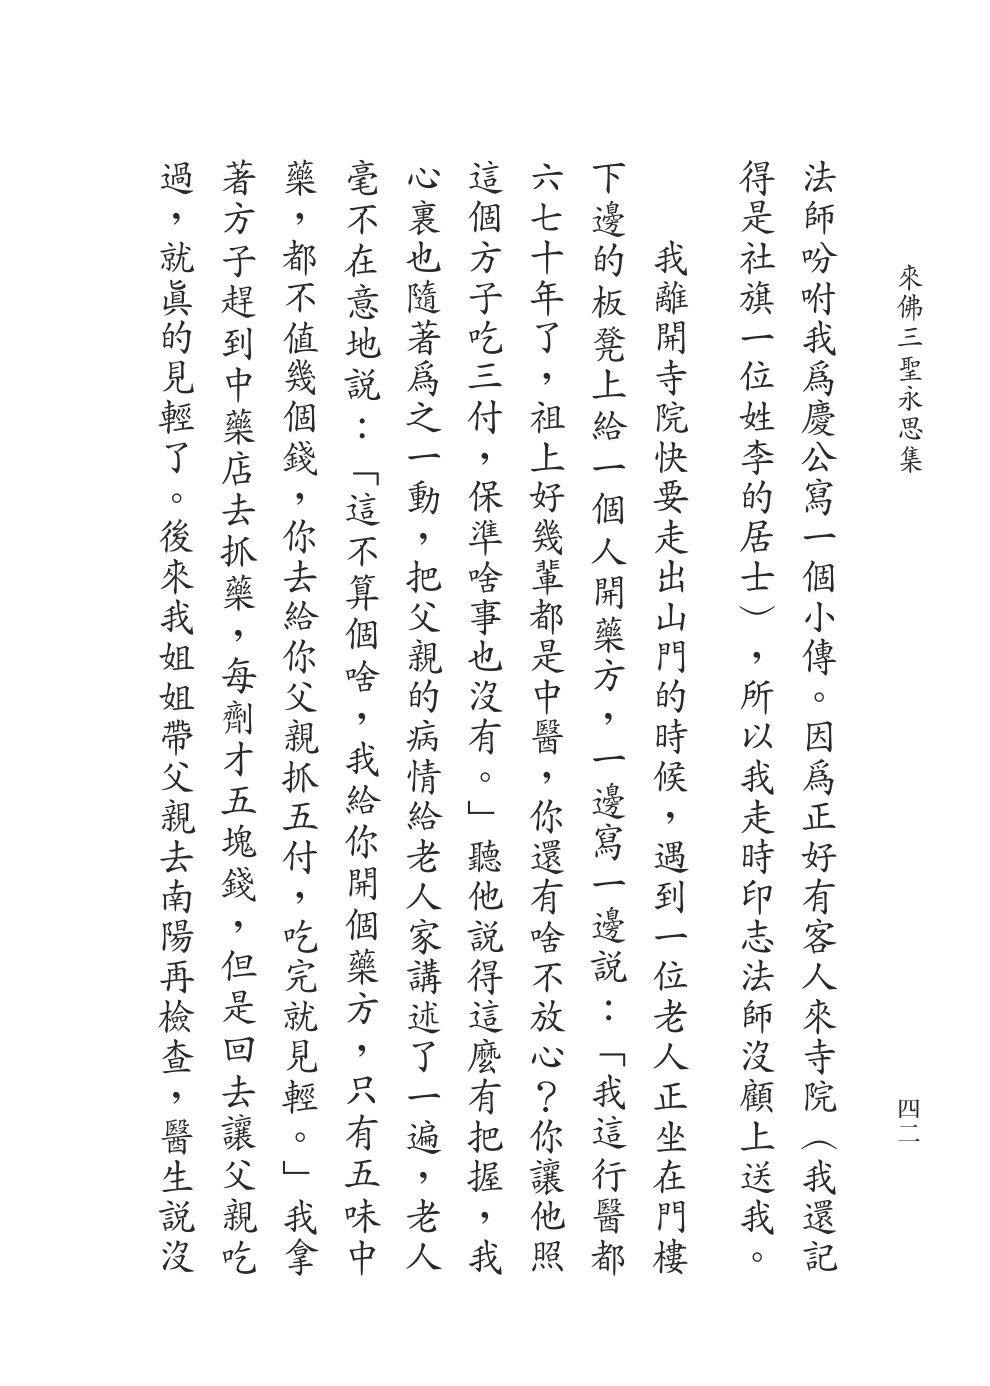 來佛三聖永思集
四二
法師吩咐我爲慶公寫一個小傳。因爲正好有客人來寺院（我還記
得是社旗一位姓李的居士），所以我走時印志法師沒顧上送我。
我離開寺院快要走出山門的時候，遇到一位老人正坐在門樓
下邊的板凳上給一個人開藥方，一邊寫一邊説：「我這行醫都
六七十年了，祖上好幾輩都是中醫，你還有啥不放心？你讓他照
這個方子吃三付，保準啥事也沒有。」聽他説得這麼有把握，我
心裏也隨著爲之一動，把父親的病情給老人家講述了一遍，老人
毫不在意地説：「這不算個啥，我給你開個藥方，只有五味中
藥，都不值幾個錢，你去給你父親抓五付，吃完就見輕。」我拿
著方子趕到中藥店去抓藥，每劑才五塊錢，但是回去讓父親吃
過，就眞的見輕了。後來我姐姐帶父親去南陽再檢查，醫生説沒